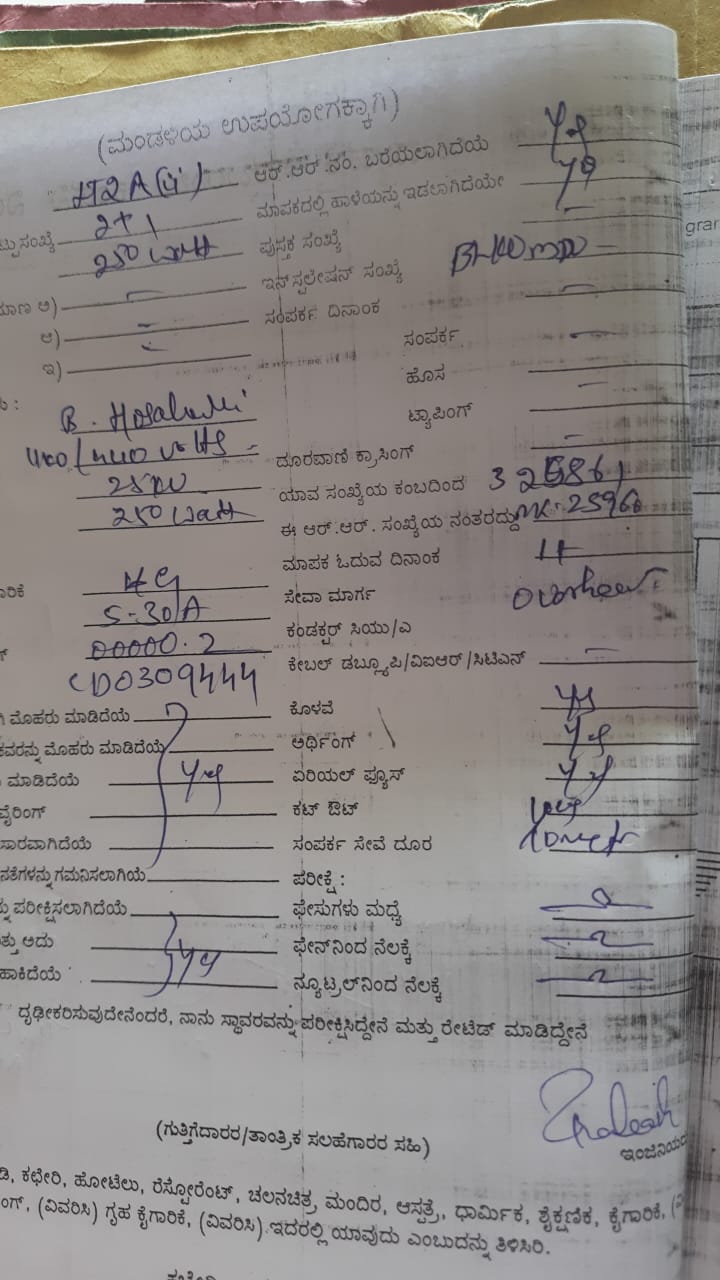 (ಮಂಡಳಿಯ ಉಪಯೋಗಕ್ಕಾಗಿ)
ಆರ್.ಆರ್.ನಂ. ಬರೆಯಲಾಗಿದೆಯೆ
ಟ್ಟು ಸಂಖ್ಯೆ 2+1 ಮಾಪಕದಲ್ಲಿ ಹಾಳೆಯನ್ನು ಇಡಲಾಗಿದೆಯೇ
250 watt ಪುಸ್ತಕ ಸಂಖ್ಯೆ
ಮಾಣ ಅ) ಇನ್‌ಸ್ಟಲೇಷನ್ ಸಂಖ್ಯೆ
ಆ) ಸಂಪರ್ಕ ದಿನಾಂಕ
ಇ) ಸಂಪರ್ಕ
ಹೊಸ
B. Hosahalli ಟ್ಯಾಪಿಂಗ್
400/440 volts ದೂರವಾಣಿ ಕ್ರಾಸಿಂಗ್
ಯಾವ ಸಂಖ್ಯೆಯ ಕಂಬದಿಂದ
250 watt ಈ ಆರ್.ಆರ್. ಸಂಖ್ಯೆಯ ನಂತರದ್ದು
ಮಾಪಕ ಓದುವ ದಿನಾಂಕ
ಾರಿಕೆ ಸೇವಾ ಮಾರ್ಗ
5-30A ಕಂಡಕ್ಟರ್ ಸಿಯು/ಎ
00000.2 ಕೇಬಲ್ ಡಬ್ಲ್ಯೂಪಿ/ವಿಐಆರ್/ಸಿಟಿಎಸ್
CD0309444
ಮೊಹರು ಮಾಡಿದೆಯೆ ಕೊಳವೆ yes
ಕವರನ್ನು ಮೊಹರು ಮಾಡಿದೆಯೆ ಅರ್ಥಿಂಗ್ yes
ಮಾಡಿದೆಯೆ yes ಏರಿಯಲ್ ಫ್ಯೂಸ್ yes
ವೈರಿಂಗ್ ಕಟ್ ಔಟ್ yes
ಸಾರವಾಗಿದೆಯೆ ಸಂಪರ್ಕ ಸೇವೆ ದೂರ
ನತೆಗಳನ್ನು ಗಮನಿಸಲಾಗಿಯೆ ಪರೀಕ್ಷೆ :
ು ಪರೀಕ್ಷಿಸಲಾಗಿದೆಯೆ ಫೇಸುಗಳು ಮಧ್ಯೆ
ತ್ತು ಅದು ಫೇನ್‌ನಿಂದ ನೆಲಕ್ಕೆ
ಹಾಕಿದೆಯೆ yes ನ್ಯೂಟ್ರಲ್‌ನಿಂದ ನೆಲಕ್ಕೆ
ದೃಢೀಕರಿಸುವುದೇನೆಂದರೆ, ನಾನು ಸ್ಥಾವರವನ್ನು ಪರೀಕ್ಷಿಸಿದ್ದೇನೆ ಮತ್ತು ರೇಟೆಡ್ ಮಾಡಿದ್ದೇನೆ
(ಗುತ್ತಿಗೆದಾರರ/ತಾಂತ್ರಿಕ ಸಲಹೆಗಾರರ ಸಹಿ) ಇಂಜಿನಿಯರ
ಡಿ, ಕಛೇರಿ, ಹೋಟೆಲು, ರೆಸ್ಟೋರೆಂಟ್, ಚಲನಚಿತ್ರ ಮಂದಿರ, ಆಸ್ಪತ್ರೆ, ಧಾರ್ಮಿಕ, ಶೈಕ್ಷಣಿಕ, ಕೈಗಾರಿಕೆ,
ಂಗ್, (ವಿವರಿಸಿ) ಗೃಹ ಕೈಗಾರಿಕೆ, (ವಿವರಿಸಿ) ಇದರಲ್ಲಿ ಯಾವುದು ಎಂಬುದನ್ನು ತಿಳಿಸಿರಿ.